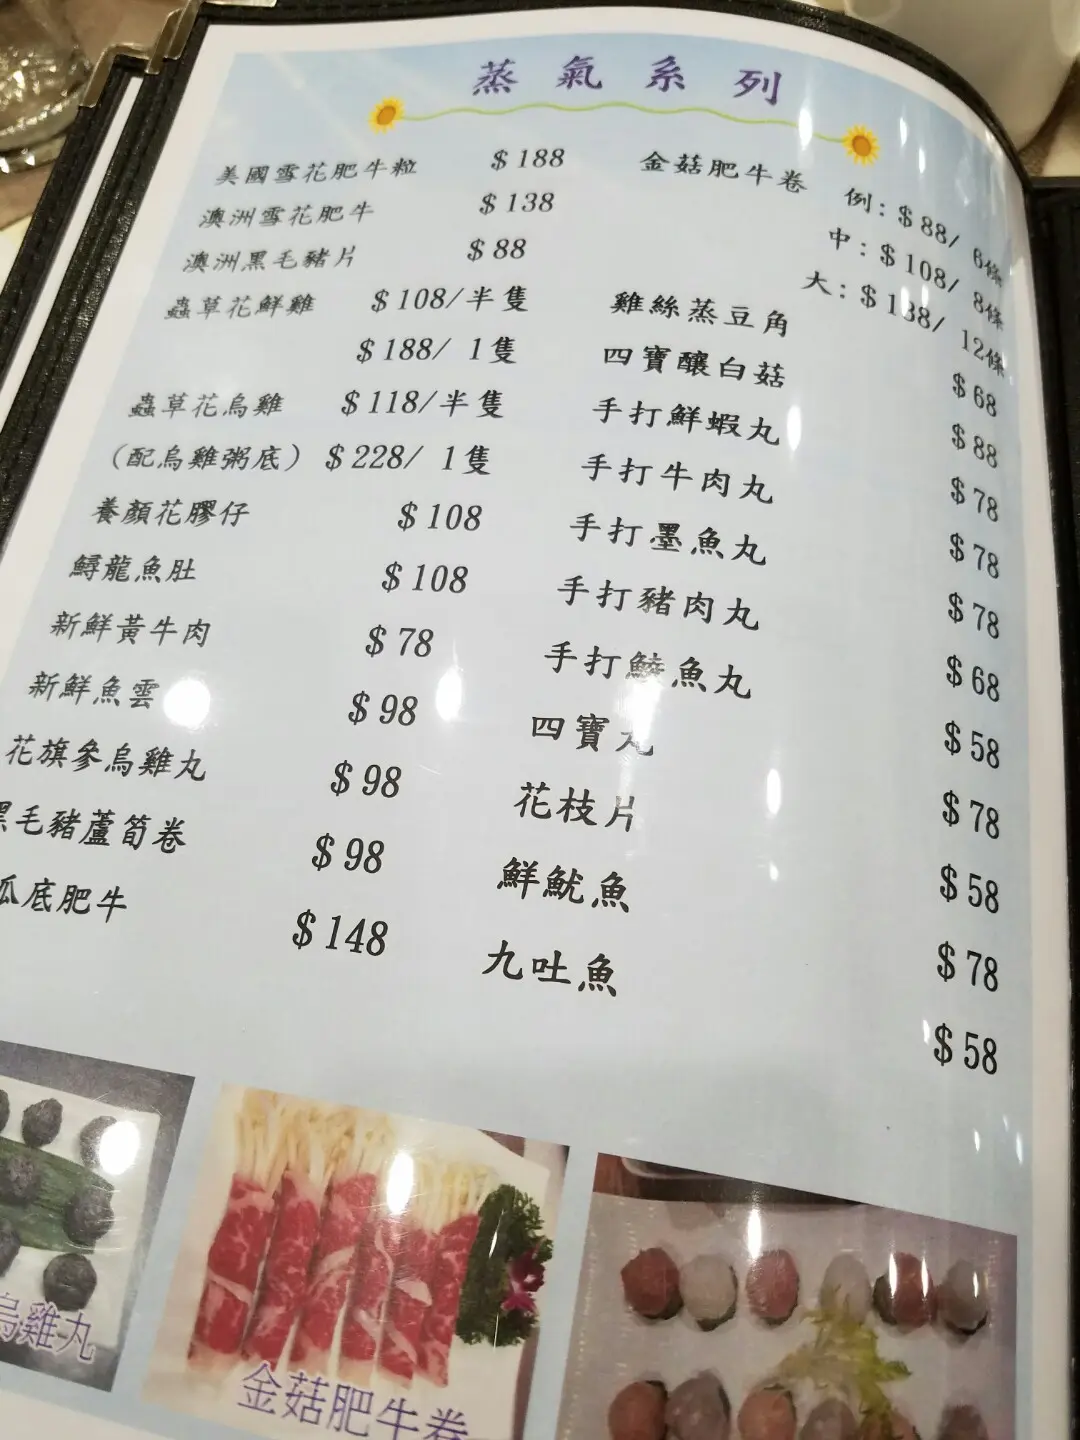 蒸氣系列
美國雪花肥牛粒 $188
澳洲雪花肥牛 $138
澳洲黑毛豬片 $88
蟲草花鮮雞 $108/半隻
$188/ 1隻
蟲草花烏雞 $118/半隻
(配烏雞粥底) $228/ 1隻
養顏花膠仔 $108
鱘龍魚肚 $108
新鮮黃牛肉 $78
新鮮魚雲 $98
花旗參烏雞丸 $98
黑毛豬蘆筍卷 $98
瓜底肥牛 $148
金菇肥牛卷 例:$88/ 6條
中:$108/ 8條
大:$138/ 12條
雞絲蒸豆角 $68
四寶釀白菇 $88
手打鮮蝦丸 $78
手打牛肉丸 $78
手打墨魚丸 $78
手打豬肉丸 $68
手打鯪魚丸 $58
四寶丸 $78
花枝片 $58
鮮魷魚 $78
九吐魚 $58
烏雞丸
金菇肥牛卷